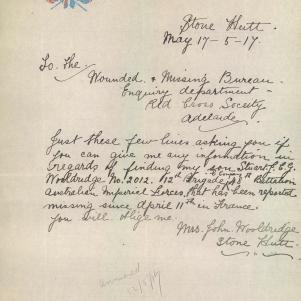 Stone Hutt.
May 17-5-17.
To. The.
Wounded. & Missing Bureau.
Enquiry department.
Red Cross Society
Adelaide.
Just these few lines asking you if
you can give me any information in
regards of finding my son Stuart
Wooldridge No. 2012. 12th Brigade 48th Battalion
Australian Imperiel Forces, that has been reported
missing since April 11th in France.
you will oblige me.
Mrs. John. Wooldridge
Stone Hutt.